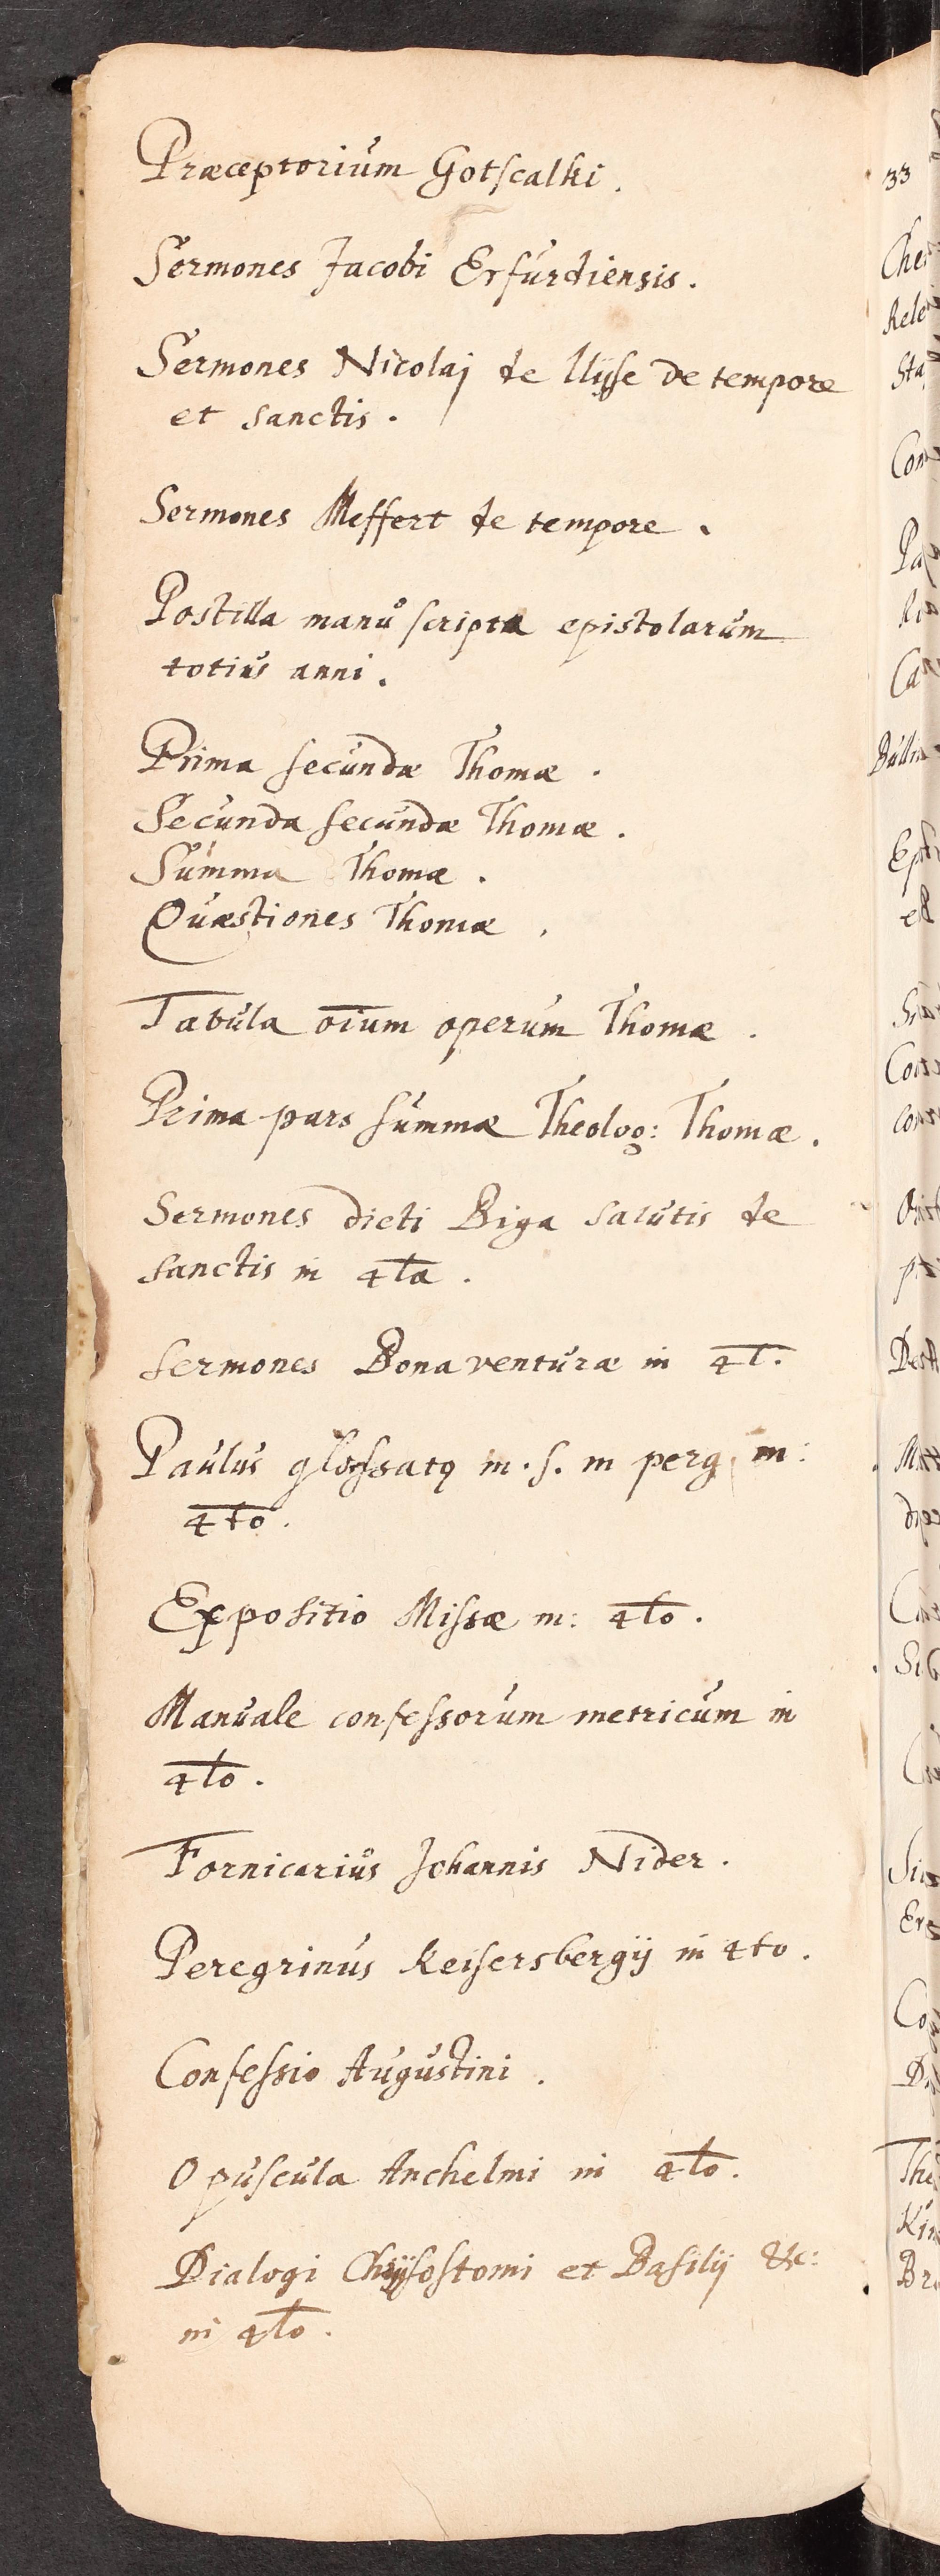 Præceptorium Gotscalki.
Sermones Jacobi Erfurdiensis.
Sermones Nicolaj de llyse de tempore
et sanctis.
Sermones Meffert de tempore.
Postilla manu scripta epistolarum
totius anni.
Prima secundæ Thomæ.
Secunda secundæ Thomæ.
Summa Thomæ.
Quæstiones Thomæ.
Tabula oīum operum Thomæ.
Prima pars summæ Theolog: Thomæ.
Sermones dicti Biga salutis de
sanctis in 4ta.
Sermones Bonaventuræ in 4t.
Paulus glossatq m.s. in perg in:
4to.
Expositio Missæ in: 4to.
Manuale confessorum metricum in
4to.
Fornicarius Johannis Nider.
Peregrinus Keisersbergij in 4to.
Confessio Augustini.
Opuscula Anchelmi in 4to.
Dialogi Chrysostomi et Basilij &c:
in 4to.
33